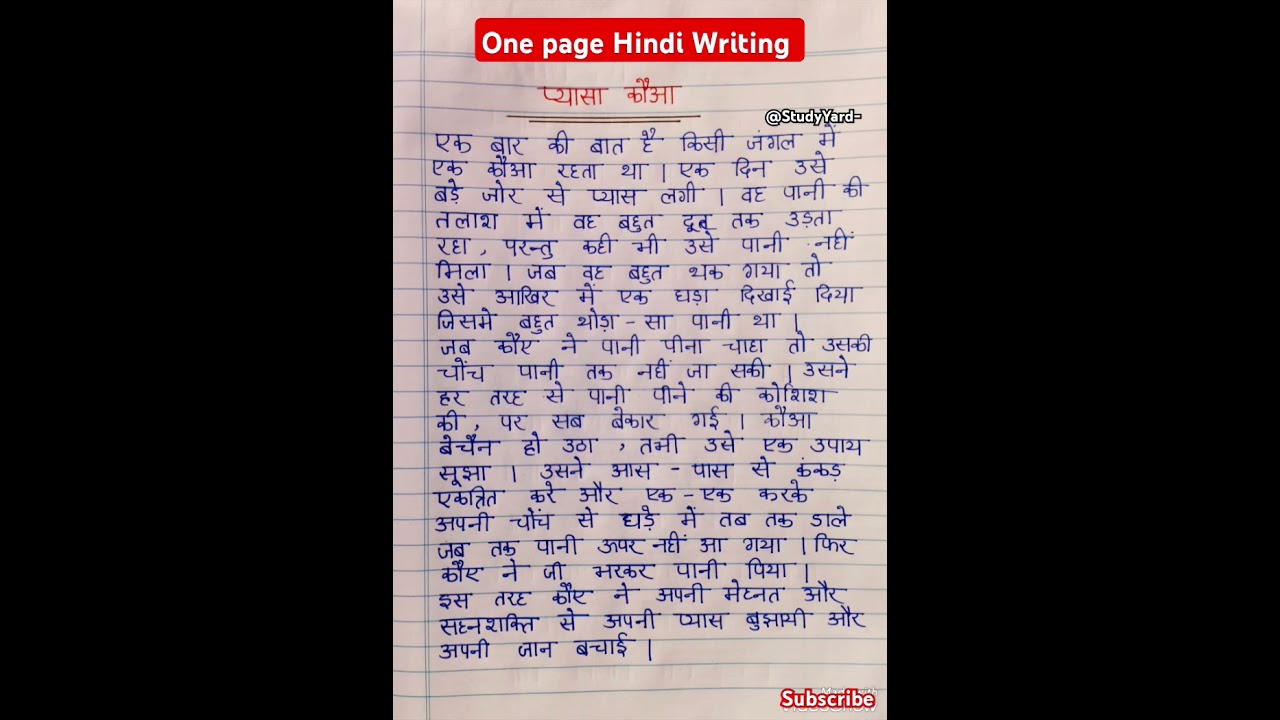 One page Hindi Writing
प्यासा कौआ
@StudyYard-
एक बार की बात है किसी जंगल में
एक कौआ रहता था । एक दिन उसे
बड़े जोर से प्यास लगी । वह पानी की
तलाश में वह बहुत दूर तक उड़ता
रहा , परन्तु कही भी उसे पानी नहीं
मिला । जब वह बहुत थक गया तो
उसे आखिर में एक घड़ा दिखाई दिया
जिसमे बहुत थोड़ा - सा पानी था ।
जब कौए ने पानी पीना चाहा तो उसकी
चोंच पानी तक नहीं जा सकी । उसने
हर तरह से पानी पीने की कोशिश
की , पर सब बेकार गई । कौआ
बेचैन हो उठा , तभी उसे एक उपाय
सूझा । उसने आस - पास से कंकड़
एकत्रित करे और एक - एक करके
अपनी चोंच से घड़े में तब तक डाले
जब तक पानी ऊपर नहीं आ गया । फिर
कौए ने जी भरकर पानी पिया ।
इस तरह कौए ने अपनी मेहनत और
सहनशक्ति से अपनी प्यास बुझायी और
अपनी जान बचाई ।
Subscribe